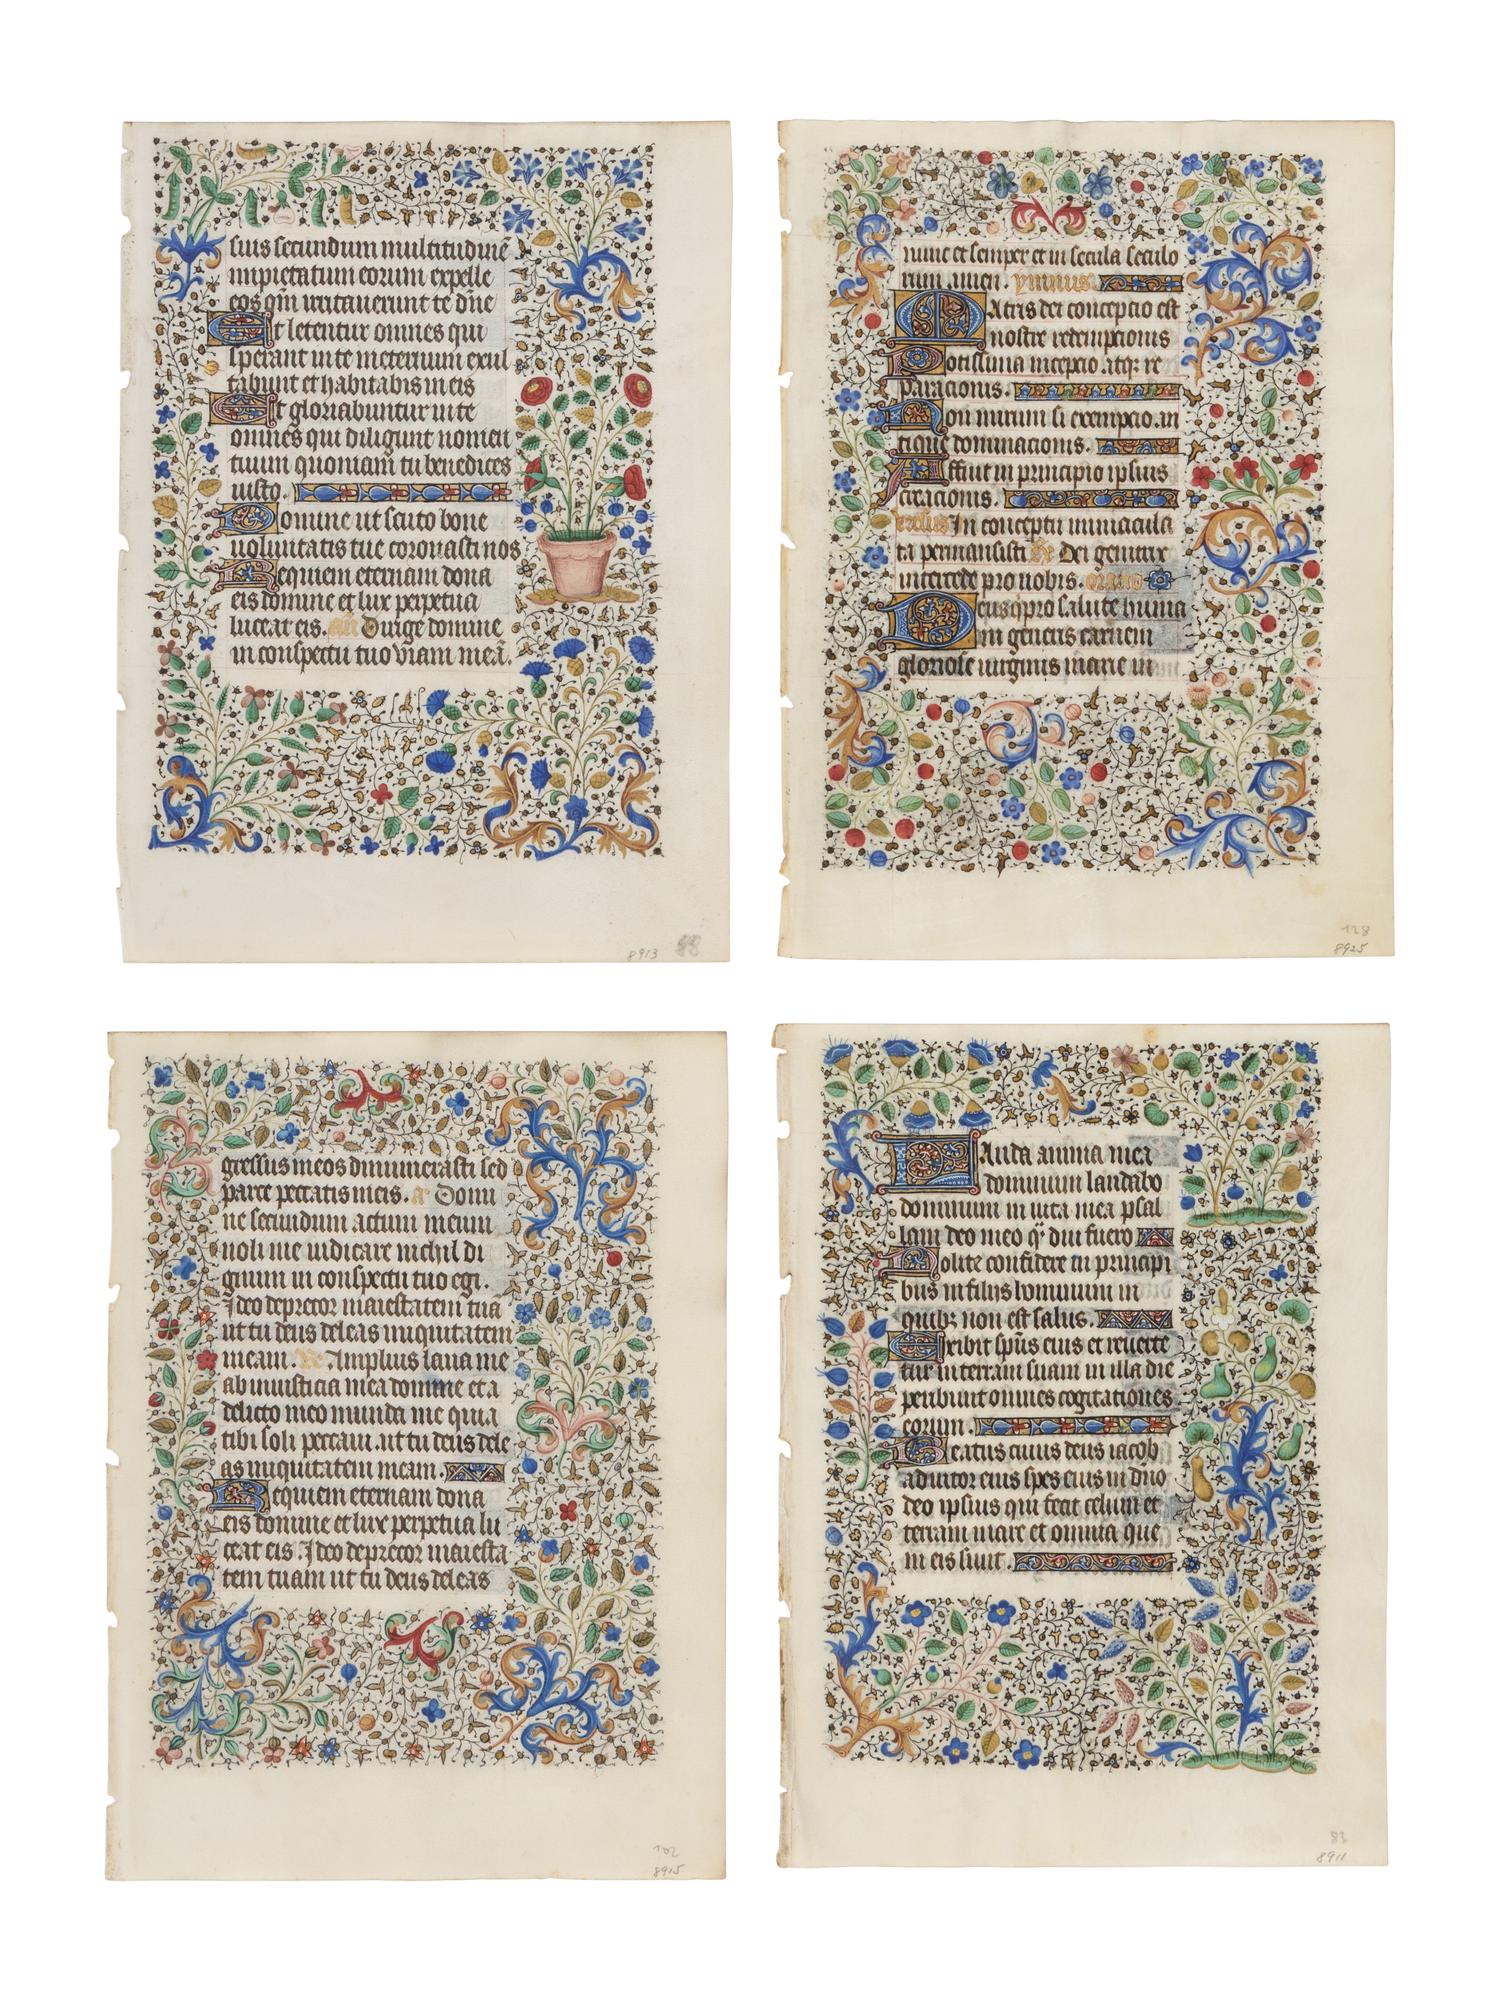 suis secundum multitudinē
impietatum eorum expelle
eos qm̄ irritauerunt te dn̄e
Et letentur omnes qui
sperant in te ineternum exul
tabunt et habitabis in eis
Et gloriabuntur in te
omnes qui diligunt nomen
tuum quoniam tu benedices
iusto.
Domine ut scuto bone
uoluntatis tue coronasti nos
Requiem eternam dona
eis domine et lux perpetua
luceat eis. añ Dirige domine
in conspectu tuo viam meā.
8913 88
nunc et semper et in secula seculo
rum amen. ymnus.
Matris dei concepcio est
nostre redempcionis
Potissima incepcio atqr re
paracionis.
Non mirum si exempcio. in
tique dominacionis.
Affuit in principio ipsius
creacionis.
versus In conceptu immacula
ta permansisti R̄ Dei genitrix
intercede pro nobis. oracio
Deus qi pro salute huma
ni generis carnem
gloriose uirginis marie in
128
8925
gressus meos dinumerasti sed
parce peccatis meis. a Domi
ne secundum actum meum
noli me iudicare nichil di
gnum in conspectu tuo egi.
Ideo deprecor maiestatem tua
ut tu deus deleas iniquitatem
meam. R̄ Amplius laua me
ab iniusticia mea domine et a
delicto meo munda me quia
tibi soli peccaui. ut tu deus dele
as iniquitatem meam.
Requiem eternam dona
eis domine et lux perpetua lu
ceat eis. Ideo deprecor maiesta
tem tuam ut tu deus deleas
102
8915
Lauda anima mea
dominum laudabo
dominum in uita mea psal
lam deo meo qr diu fuero
Nolite confidere in principi
bus in filijs hominum in
quibz non est salus.
Exibit spūs eius et reuerte
tur in terram suam in illa die
peribunt omnes cogitationes
eorum.
Beatus cuius deus iacob
adiutor eius spes eius in dno
deo ipsius qui fecit celum et
terram mare et omnia que
in eis sunt.
83
8911